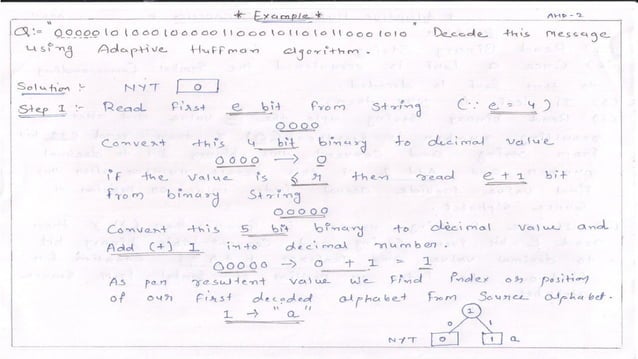 * Example *
AHD-2
Q:- "00000101000100000110001011010110001010" Decode this message
using Adaptive Huffman algorithm.
Solution :- NYT 0
Step 1 :- Read First e bit From String (∵ e = 4)
0000
Convert this 4 bit binary to decimal value
0000 → 0
if the value is ≤ r then read e+1 bit
from binary String
00000
Convert this 5 bit binary to decimal value and
Add (+) 1 into decimal number.
00000 → 0 + 1 = 1
As per resultent value we Find Index or position
of our First decoded alphabet From Source alphabet.
1 → "a"
1
0 1
NYT 0 1 a